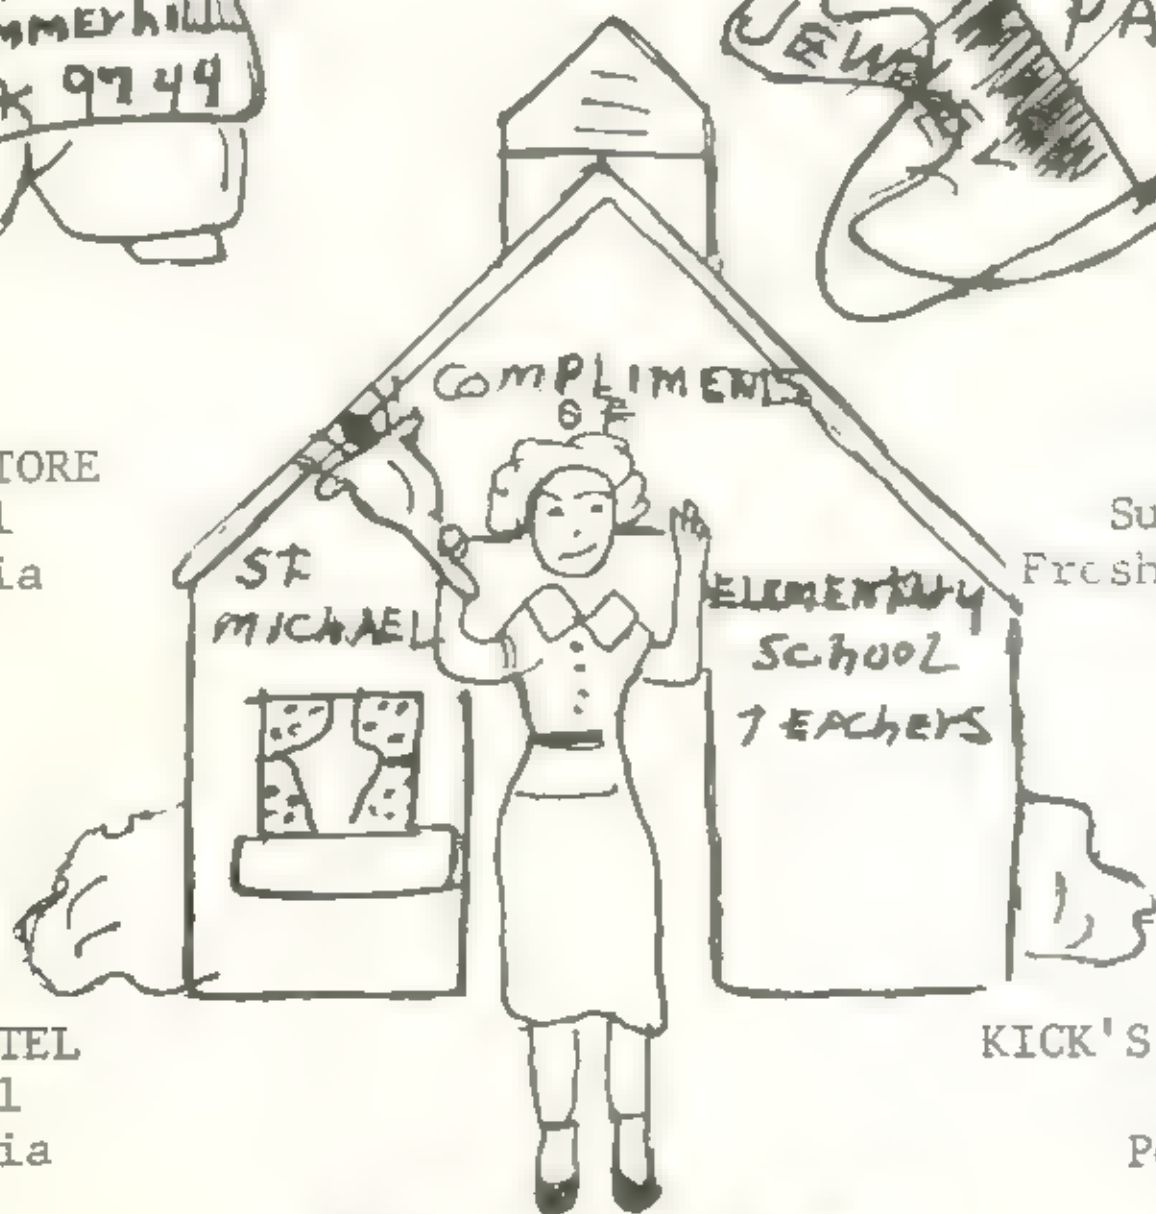 9744
JEWEL
COMPLIMENTS
OF
ST
MICHAEL
ELEMENTARY
SCHOOL
TEACHERS
TORE
l
ia
Su
Fresh
TEL
l
ia
KICK'S
P